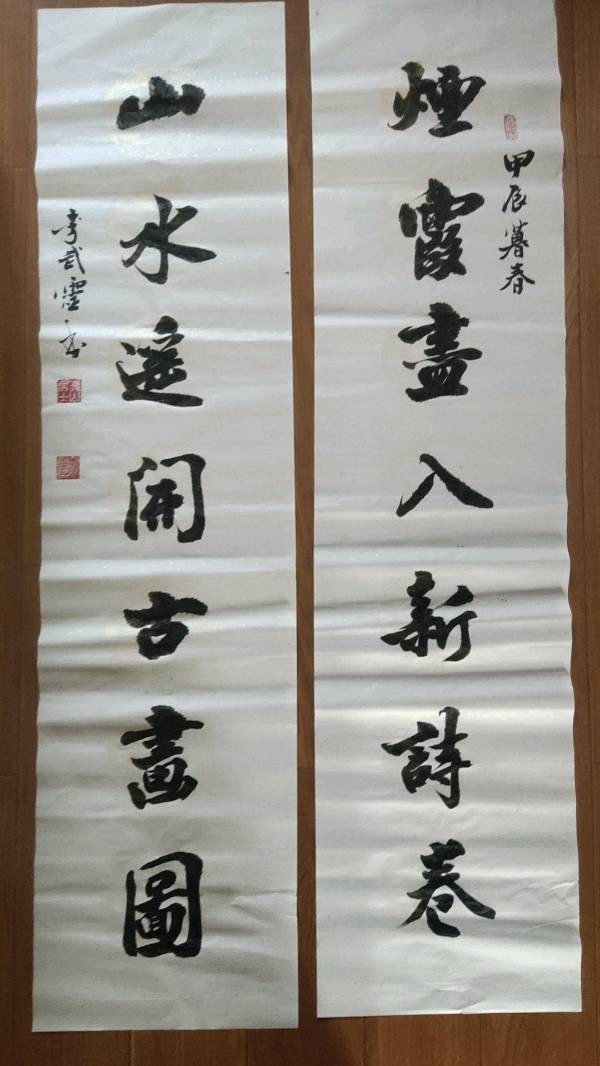 煙霞盡入新詩卷
甲辰暮春
山水遥開古畫圖
李武靈書